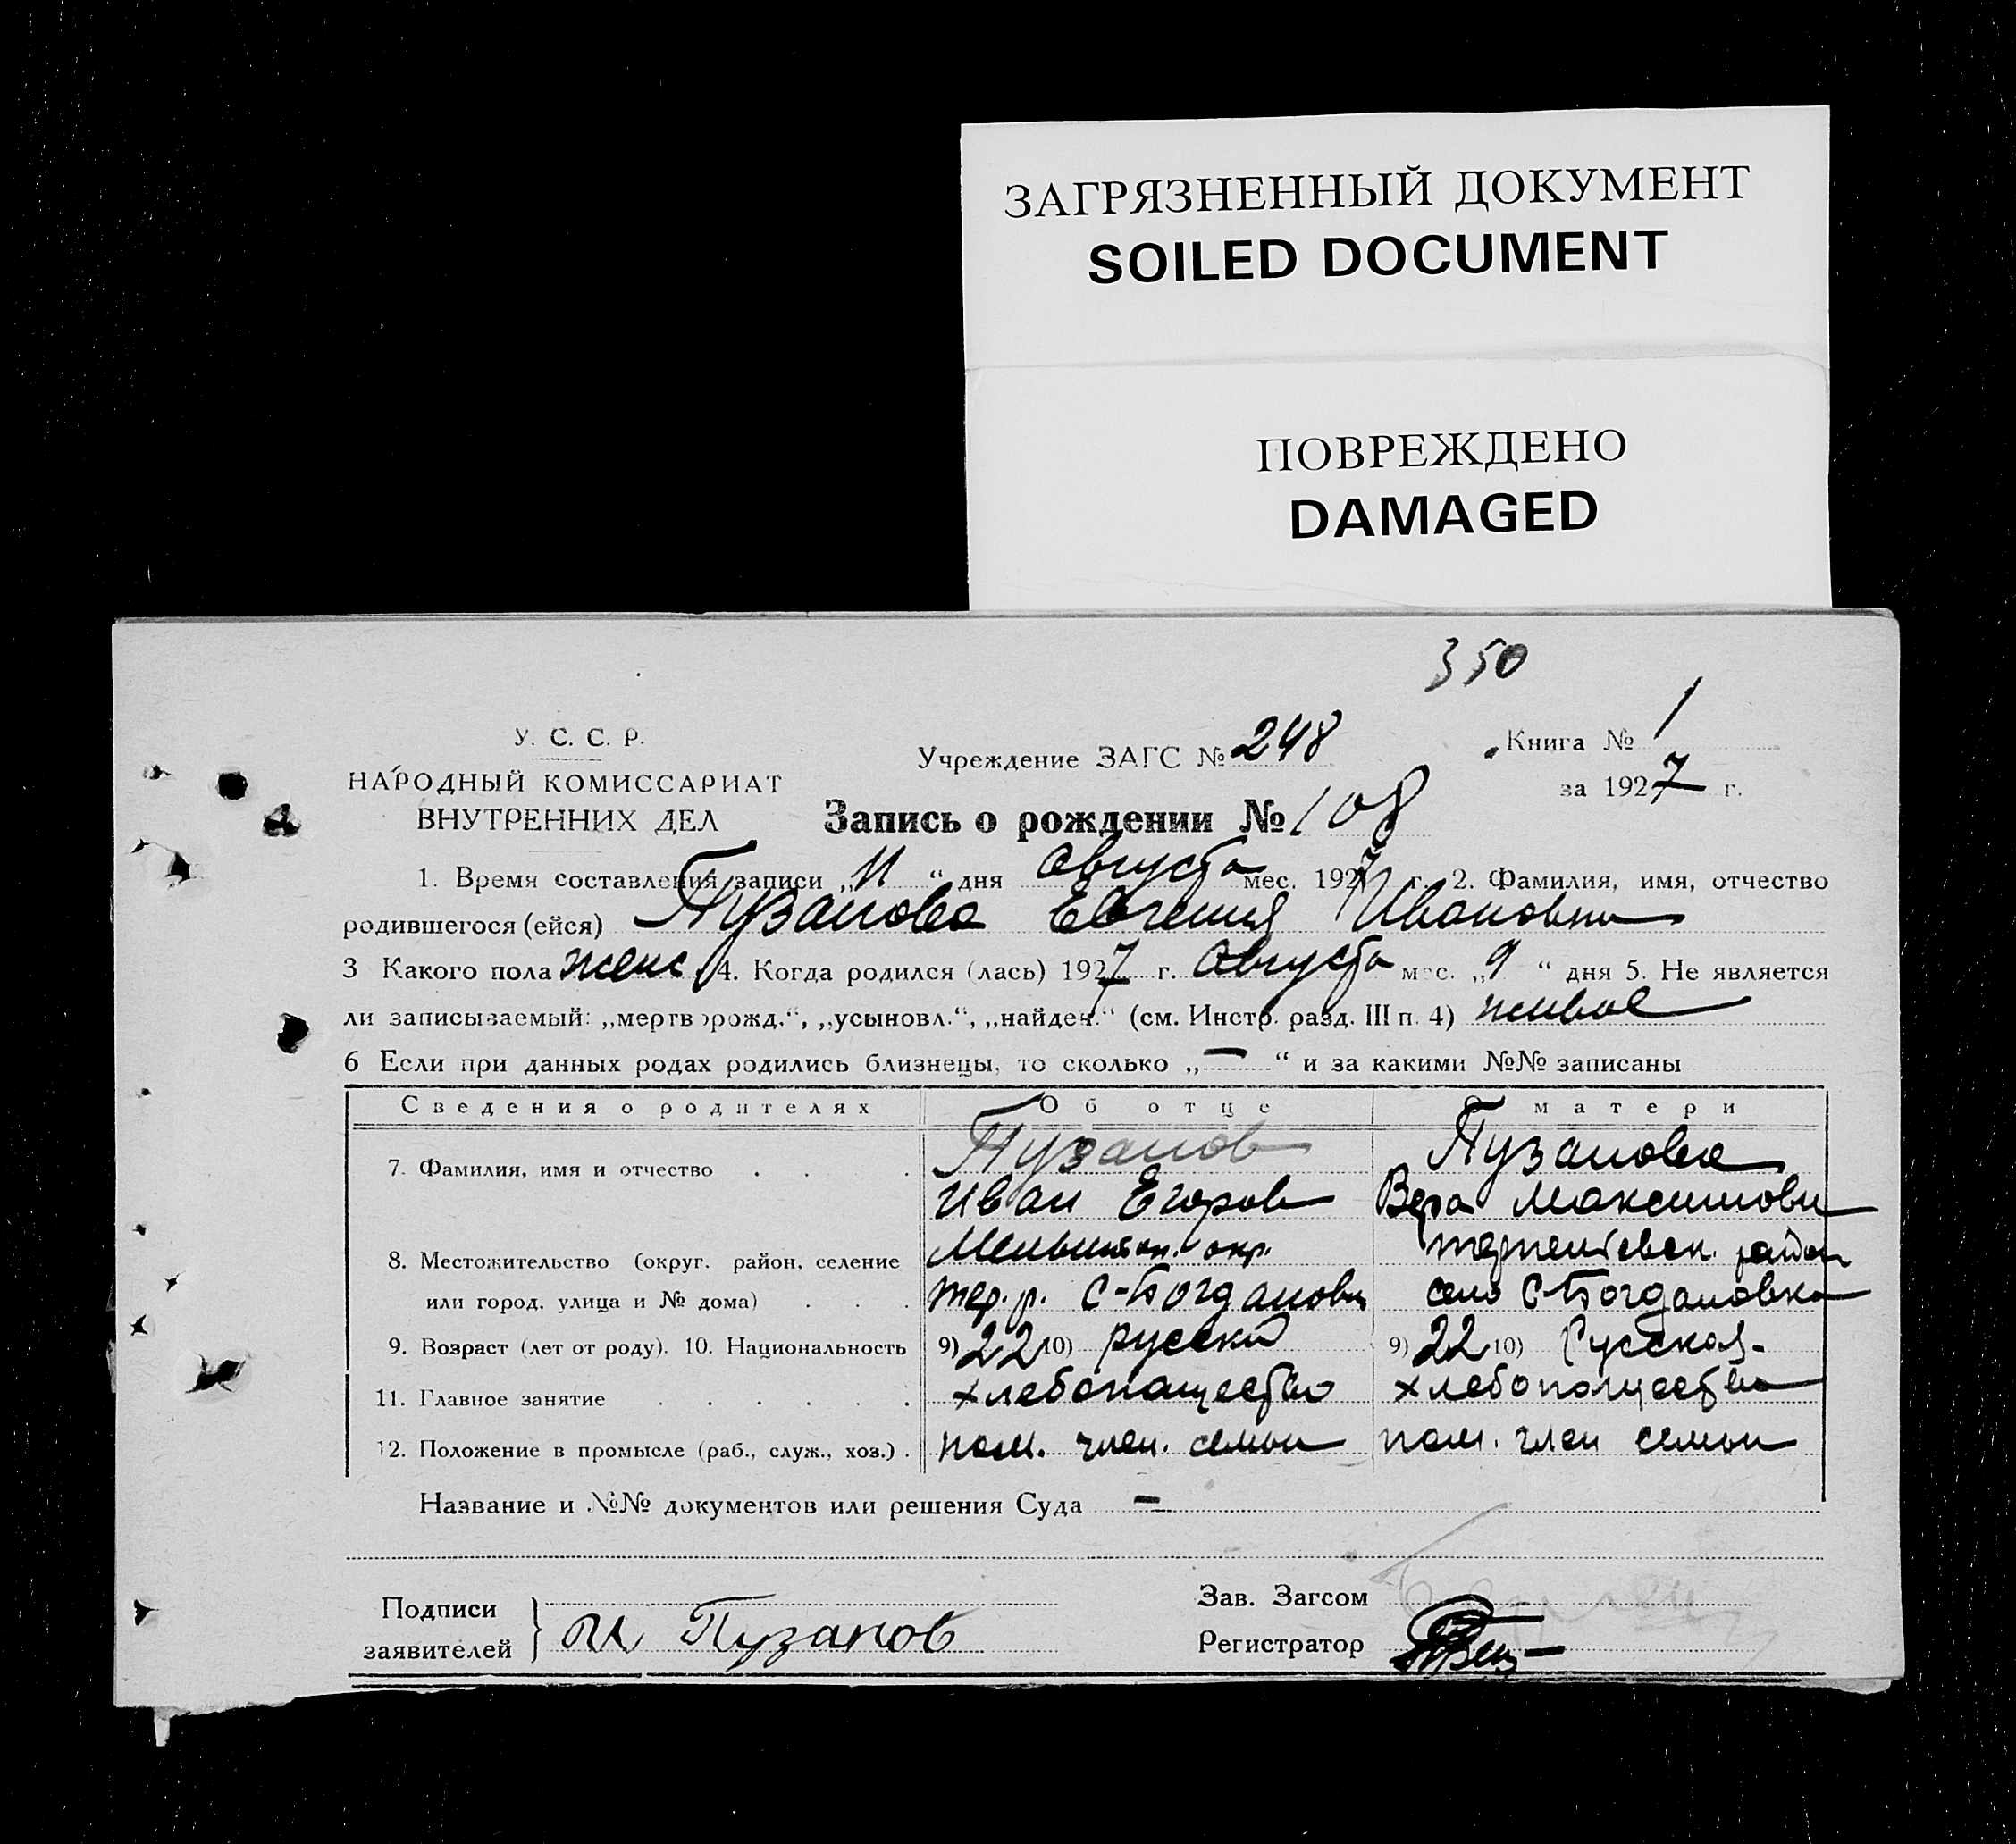 ЗАГРЯЗНЕННЫЙ ДОКУМЕНТ
SOILED DOCUMENT
ПОВРЕЖДЕНО
DAMAGED
350
У. С. С. Р.
НАРОДНЫЙ КОМИССАРИАТ
ВНУТРЕННИХ ДЕЛ
Учреждение ЗАГС № 248
Книга № 1
за 1927 г.
Запись о рождении № 108
1. Время составления записи „11“ дня августа мес. 1927 г. 2. Фамилия, имя, отчество
родившегося (ейся) Пузанова Евгения Ивановна
3 Какого пола женс 4. Когда родился (лась) 1927 г. августа мес. „9“ дня 5. Не является
ли записываемый: „мертворожд.“, „усыновл.“, „найден.“ (см. Инстр. разд. III п. 4) живое
6 Если при данных родах родились близнецы, то сколько „—“ и за какими №№ записаны
Сведения о родителях Об отце О матери
7. Фамилия, имя и отчество Пузанов Пузанова
Иван Егоров Вера Максимовн
8. Местожительство (округ, район, селение окр. район
или город, улица и № дома) тер. р. С-Богдановка село С-Богдановка
9. Возраст (лет от роду). 10. Национальность 9) 22 10) русский 9) 22 10) Русская
11. Главное занятие хлебопашество хлебопашество
12. Положение в промысле (раб., служ., хоз.) пом. член. семьи пом. член семьи
Название и №№ документов или решения Суда —
Подписи
заявителей } И Пузанов
Зав. Загсом
Регистратор